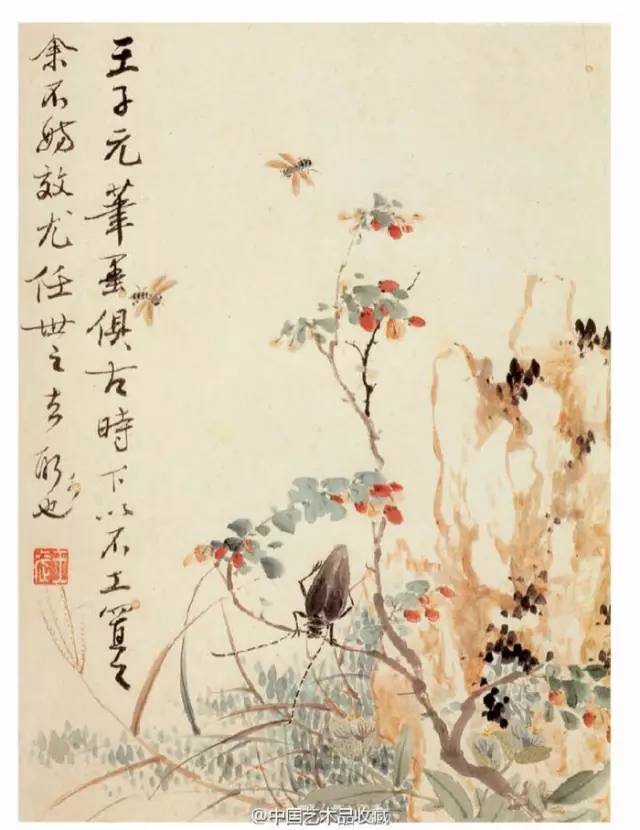 王子元筆墨俱古時下以不工置之
余不妨效尤任世之去取也
@中国艺术品收藏